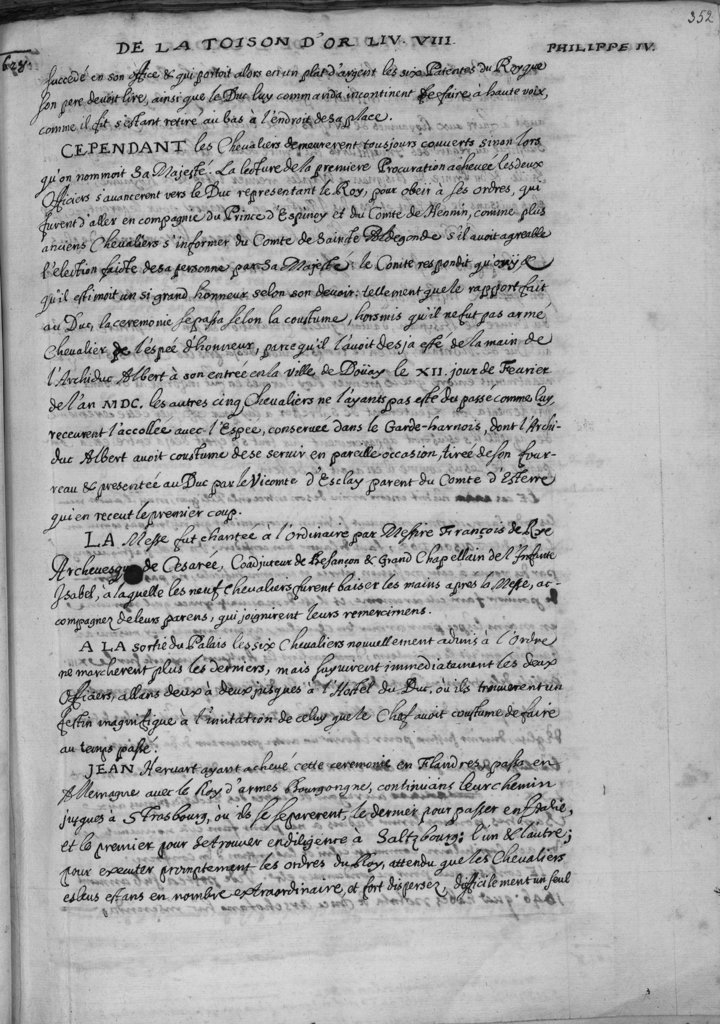 352
DE LA TOISON D'OR LIV. VIII. PHILIPPE IV.
succedé en son office & qui portoit alors en un plat d'argent les six Patentes du Roy que
son pere devoit lire, ainsi que le Duc luy commanda incontinent de faire à haute voix,
comme il fit s'estant retiré au bas à l'endroit de sa place.
CEPENDANT les Chevaliers demeurerent tousjours couverts sinon lors
qu'on nommoit Sa Majesté. La lecture de la premiere Procuration achevée les deux
Officiers s'avancerent vers le Duc representant le Roy, pour obeir à ses ordres, qui
furent d'aller en compagnie du Prince d'Espinoy et du Comte de Hennin, comme plus
anciens Chevaliers s'informer du Comte de Sainte Aldegonde s'il avoit agreable
l'election faicte de sa personne par Sa Majesté: le Comte respondit qu'ouy &
qu'il estimoit un si grand honneur selon son devoir: tellement que le rapport fait
au Duc, la ceremonie se passa selon la coustume, horsmis qu'il ne fut pas armé
Chevalier de l'espée d'honneur, parce qu'il l'avoit desja esté de la main de
l'Archiduc Albert à son entrée en la ville de Doüay le XII. jour de Fevrier
de l'an MDC. les autres cinq Chevaliers ne l'ayants pas esté du passé comme luy
receurent l'accollée avec l'Espee, conservée dans le Garde-harnois, dont l'Archi-
duc Albert avoit coustume de se servir en pareille occasion, tirée de son four-
reau & presentée au Duc par le Vicomte d'Esclay parent du Comte d'Esterre
qui en receut le premier coup.
LA Messe fut chantée à l'ordinaire par Messire François de Rye
Archevesque de Cesarée, Coadjuteur de Besançon & Grand Chapellain de l'Infante
Isabel, à laquelle les neuf Chevaliers furent baiser les mains apres la Messe, ac-
compagnez de leurs parens, qui joignirent leurs remercimens.
A LA sortie du Palais les six Chevaliers nouvellement admis à l'Ordre
ne marcherent plus les derniers, mais suyvirent immediatament les deux
Officiers, allans deux à deux jusques à l'Hostel du Duc, où ils trouverent un
festin magnifique à l'imitation de celuy que le Chef avoit coustume de faire
au temps passé.
JEAN Hervart ayant achevé cette ceremonie en Flandres, passa en
Allemagne avec le Roy d'armes Bourgongne, continuans leur chemin
jusques à Strasbourg, où ils se separerent, le dernier pour passer en Italie,
et le premier pour se trouver en diligence à Saltzbourg; l'un & l'autre;
pour executer promptement les ordres du Roy, attendu que les Chevaliers
esleus estans en nombre extraordinaire, et fort dispersez, difficilement un seul